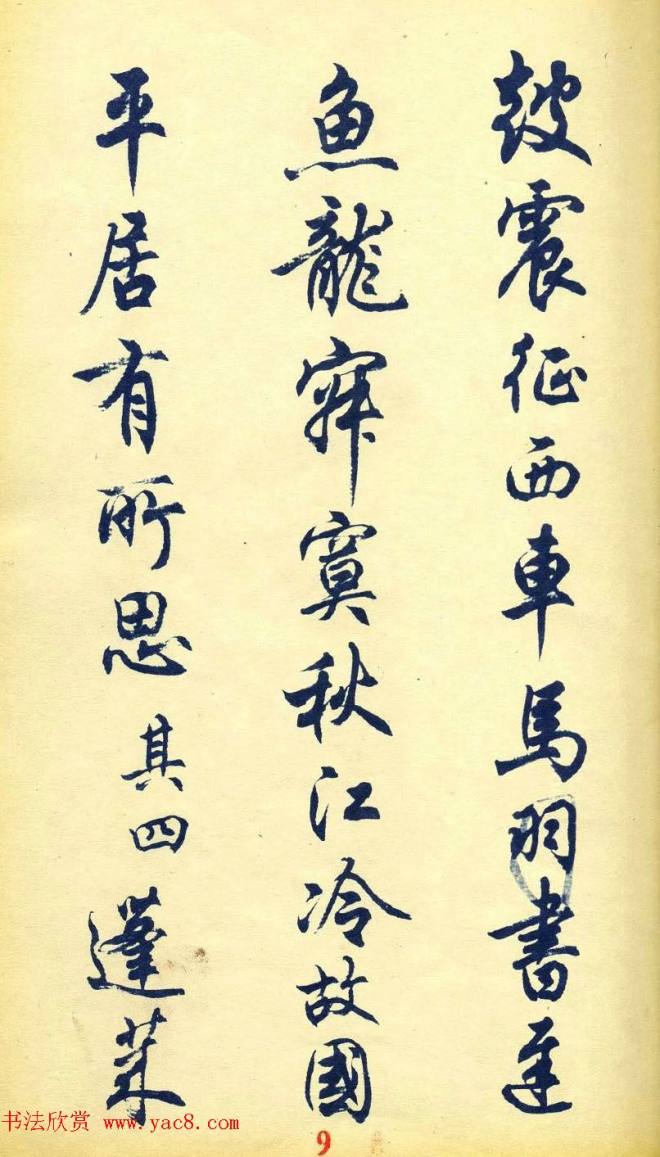 鼓震征西車馬羽書遲
魚龍寂寞秋江冷故國
平居有所思 其四 蓬萊
书法欣赏 www.yac8.com
9